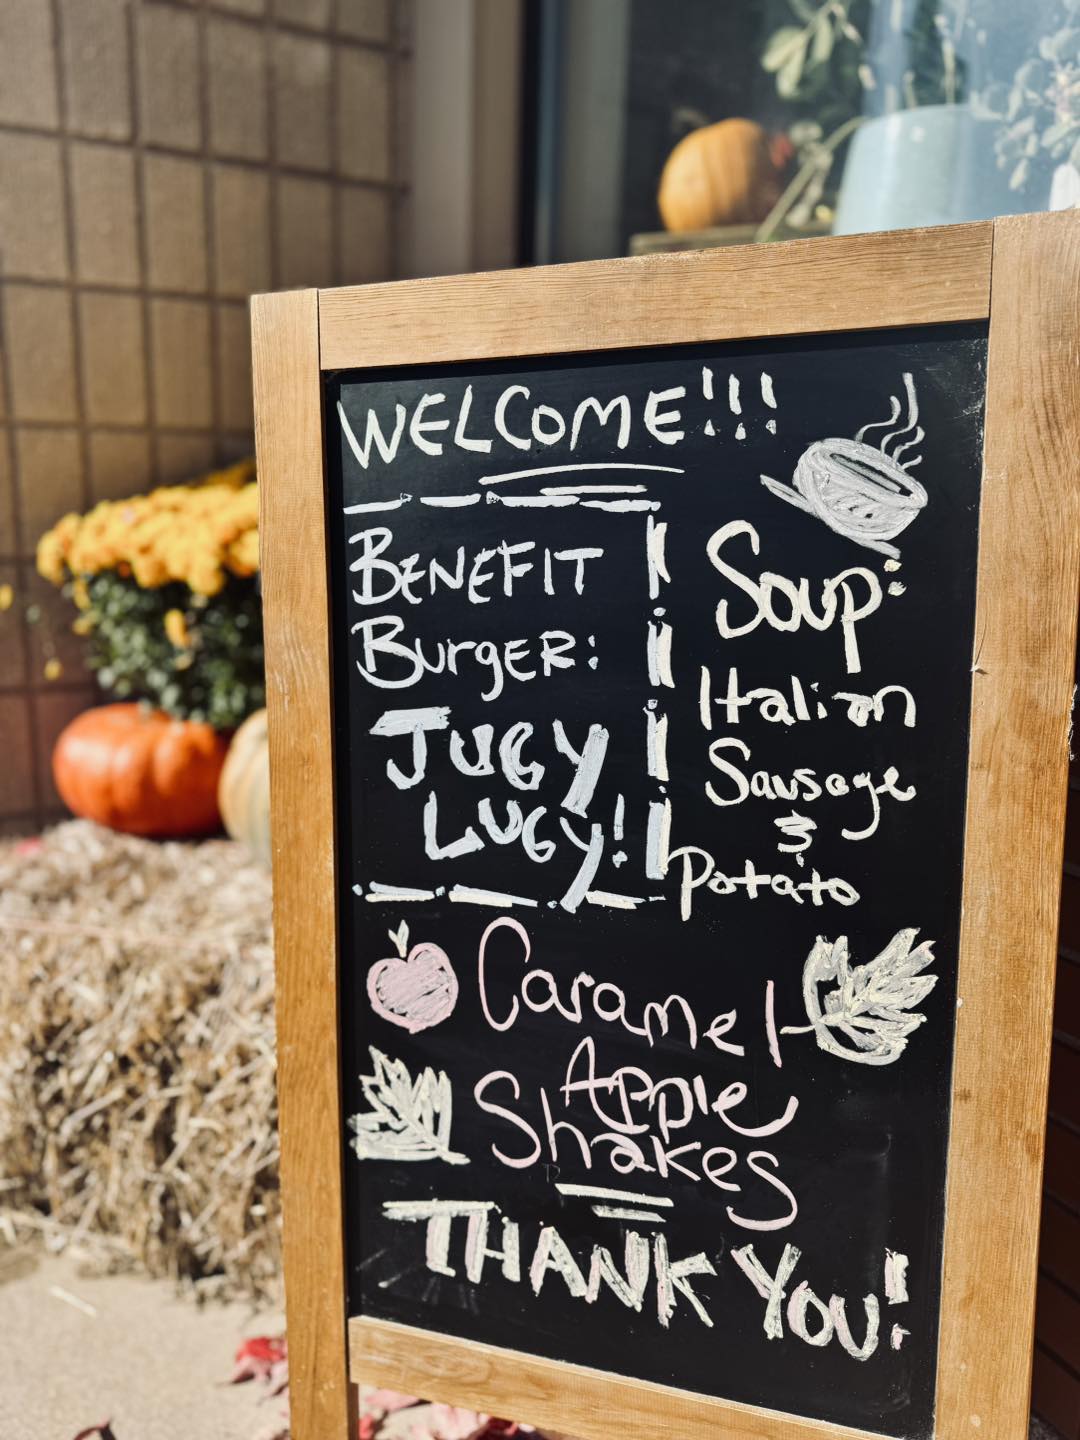 WELCOME!!!
BENEFIT
BurgER:
JUGY
LUGY!
Soup:
Italian
Sausage
&
Potato
Caramel
Apple
Shakes
THANK YOU!